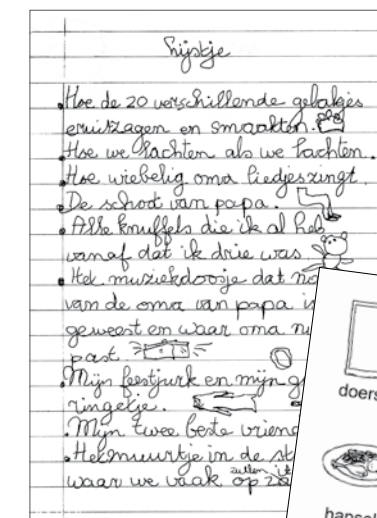 Lijstje
• Hoe de 20 verschillende gebakjes
eruitzagen en smaakten.
• Hoe we lachten als we lachten.
• Hoe wiebelig oma liedjes zingt.
• De schoot van papa.
• Alle knuffels die ik al heb
vanaf dat ik drie was.
• Het muziekdoosje dat no
van de oma van papa is
geweest en waar oma n
past.
• Mijn feestjurk en mijn g
ringetje.
• Mijn twee beste vriend
• Het muurtje in de st
waar we vaak op zitten
doers
hapsel